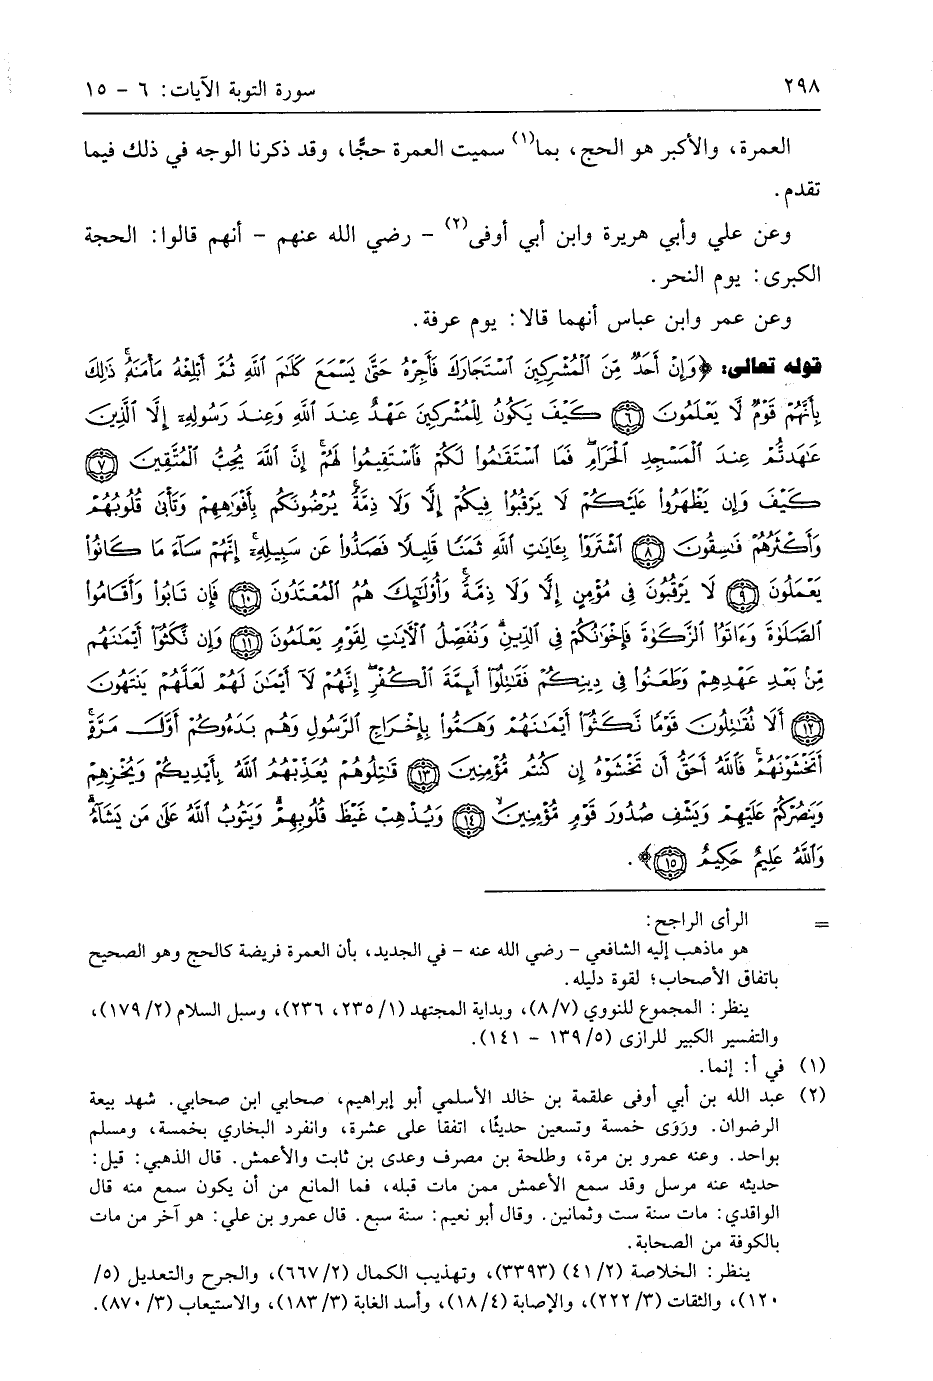 ٢٩٨ سورة التوبة الآيات: ٦ - ١٥
العمرة، والأكبر هو الحج، بما(١) سميت العمرة حجًّا، وقد ذكرنا الوجه في ذلك فيما
تقدم.
وعن علي وأبي هريرة وابن أبي أوفى(٢) - رضي الله عنهم - أنهم قالوا: الحجة
الكبرى: يوم النحر.
وعن عمر وابن عباس أنهما قالا: يوم عرفة.
قوله تعالى: ﴿وَإِنْ أَحَدٌ مِّنَ ٱلْمُشْرِكِينَ ٱسْتَجَارَكَ فَأَجِرْهُ حَتَّىٰ يَسْمَعَ كَلَٰمَ ٱللَّهِ ثُمَّ أَبْلِغْهُ مَأْمَنَهُۥۚ ذَٰلِكَ
بِأَنَّهُمْ قَوْمٌ لَّا يَعْلَمُونَ ۝٦ كَيْفَ يَكُونُ لِلْمُشْرِكِينَ عَهْدٌ عِندَ ٱللَّهِ وَعِندَ رَسُولِهِۦٓ إِلَّا ٱلَّذِينَ
عَٰهَدتُّمْ عِندَ ٱلْمَسْجِدِ ٱلْحَرَامِۖ فَمَا ٱسْتَقَٰمُوا۟ لَكُمْ فَٱسْتَقِيمُوا۟ لَهُمْۚ إِنَّ ٱللَّهَ يُحِبُّ ٱلْمُتَّقِينَ ۝٧
كَيْفَ وَإِن يَظْهَرُوا۟ عَلَيْكُمْ لَا يَرْقُبُوا۟ فِيكُمْ إِلًّا وَلَا ذِمَّةًۚ يُرْضُونَكُم بِأَفْوَٰهِهِمْ وَتَأْبَىٰ قُلُوبُهُمْ
وَأَكْثَرُهُمْ فَٰسِقُونَ ۝٨ ٱشْتَرَوْا۟ بِـَٔايَٰتِ ٱللَّهِ ثَمَنًا قَلِيلًا فَصَدُّوا۟ عَن سَبِيلِهِۦٓۚ إِنَّهُمْ سَآءَ مَا كَانُوا۟
يَعْمَلُونَ ۝٩ لَا يَرْقُبُونَ فِى مُؤْمِنٍ إِلًّا وَلَا ذِمَّةًۚ وَأُو۟لَٰٓئِكَ هُمُ ٱلْمُعْتَدُونَ ۝١٠ فَإِن تَابُوا۟ وَأَقَامُوا۟
ٱلصَّلَوٰةَ وَءَاتَوُا۟ ٱلزَّكَوٰةَ فَإِخْوَٰنُكُمْ فِى ٱلدِّينِۗ وَنُفَصِّلُ ٱلْـَٔايَٰتِ لِقَوْمٍ يَعْلَمُونَ ۝١١ وَإِن نَّكَثُوٓا۟ أَيْمَٰنَهُم
مِّنۢ بَعْدِ عَهْدِهِمْ وَطَعَنُوا۟ فِى دِينِكُمْ فَقَٰتِلُوٓا۟ أَئِمَّةَ ٱلْكُفْرِۙ إِنَّهُمْ لَآ أَيْمَٰنَ لَهُمْ لَعَلَّهُمْ يَنتَهُونَ
۝١٢ أَلَا تُقَٰتِلُونَ قَوْمًا نَّكَثُوٓا۟ أَيْمَٰنَهُمْ وَهَمُّوا۟ بِإِخْرَاجِ ٱلرَّسُولِ وَهُم بَدَءُوكُمْ أَوَّلَ مَرَّةٍۚ
أَتَخْشَوْنَهُمْۚ فَٱللَّهُ أَحَقُّ أَن تَخْشَوْهُ إِن كُنتُم مُّؤْمِنِينَ ۝١٣ قَٰتِلُوهُمْ يُعَذِّبْهُمُ ٱللَّهُ بِأَيْدِيكُمْ وَيُخْزِهِمْ
وَيَنصُرْكُمْ عَلَيْهِمْ وَيَشْفِ صُدُورَ قَوْمٍ مُّؤْمِنِينَ ۝١٤ وَيُذْهِبْ غَيْظَ قُلُوبِهِمْۗ وَيَتُوبُ ٱللَّهُ عَلَىٰ مَن يَشَآءُۗ
وَٱللَّهُ عَلِيمٌ حَكِيمٌ ۝١٥﴾.
= الرأى الراجح:
هو ماذهب إليه الشافعي - رضي الله عنه - في الجديد، بأن العمرة فريضة كالحج وهو الصحيح
باتفاق الأصحاب؛ لقوة دليله.
ينظر: المجموع للنووي (٨/٧)، وبداية المجتهد (٢٣٥/١، ٢٣٦)، وسبل السلام (١٧٩/٢)،
والتفسير الكبير للرازى (١٣٩/٥ - ١٤١).
(١) في أ: إنما.
(٢) عبد الله بن أبي أوفى علقمة بن خالد الأسلمي أبو إبراهيم، صحابي ابن صحابي. شهد بيعة
الرضوان. ورَوَى خمسة وتسعين حديثًا، اتفقا على عشرة، وانفرد البخاري بخمسة، ومسلم
بواحد. وعنه عمرو بن مرة، وطلحة بن مصرف وعدى بن ثابت والأعمش. قال الذهبي: قيل:
حديثه عنه مرسل وقد سمع الأعمش ممن مات قبله، فما المانع من أن يكون سمع منه قال
الواقدي: مات سنة ست وثمانين. وقال أبو نعيم: سنة سبع. قال عمرو بن علي: هو آخر من مات
بالكوفة من الصحابة.
ينظر: الخلاصة (٤١/٢) (٣٣٩٣)، وتهذيب الكمال (٦٦٧/٢)، والجرح والتعديل (٥/
١٢٠)، والثقات (٢٢٢/٣)، والإصابة (١٨/٤)، وأسد الغابة (١٨٣/٣)، والاستيعاب (٨٧٠/٣).